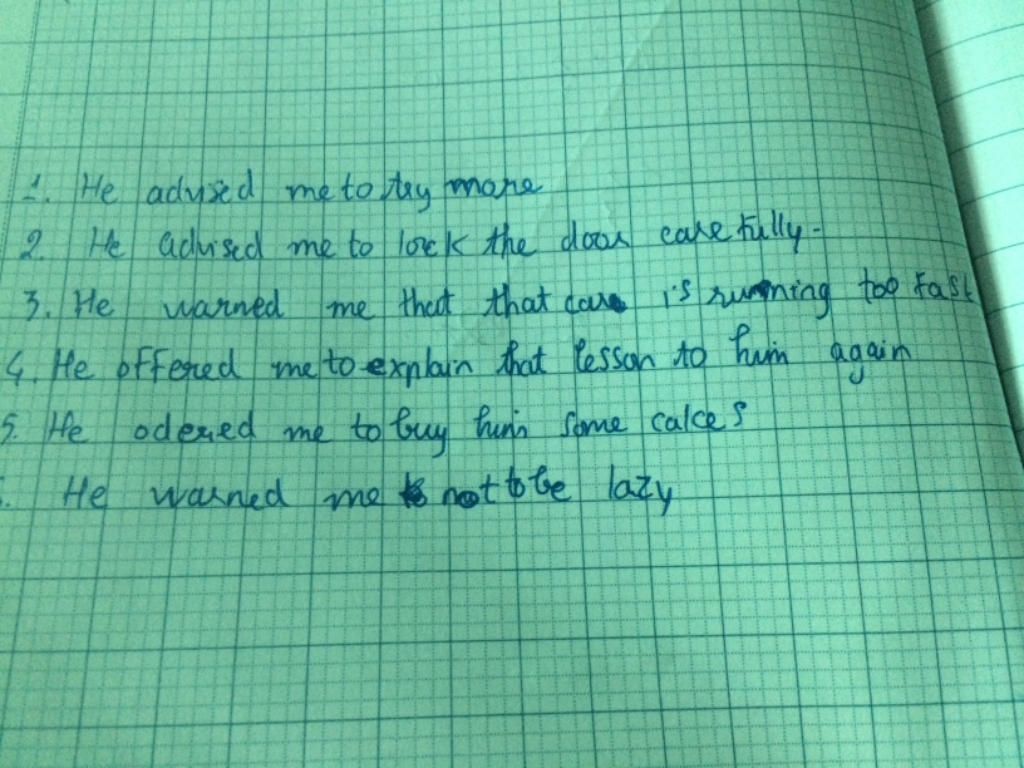 1. He advised me to try more
2. He advised me to lock the door carefully.
3. He warned me that that car is running too fast
4. He offered me to explain that lesson to him again
5. He odered me to buy him some cakes
. He warned me not to be lazy